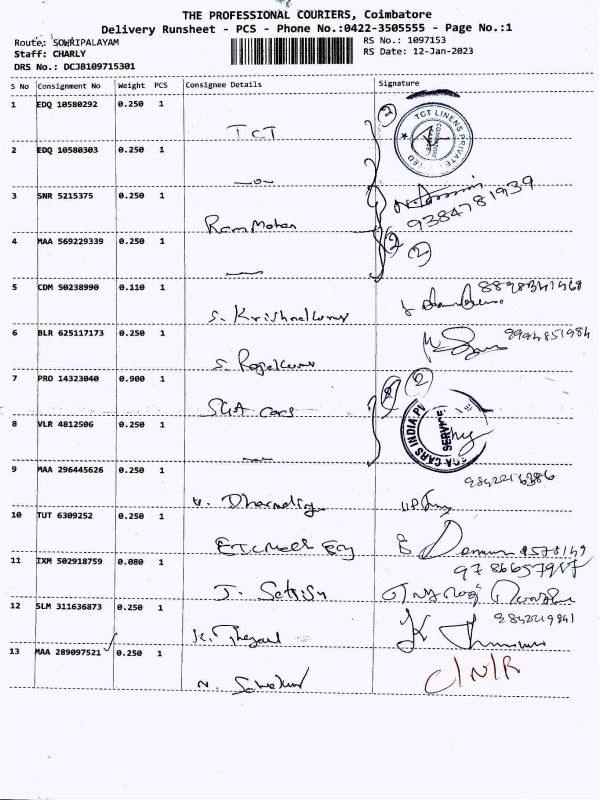 THE PROFESSIONAL COURIERS, Coimbatore
Delivery Runsheet - PCS - Phone No.:0422-3505555 - Page No.:1
Route: SOWRIPALAYAM
Staff: CHARLY
DRS No.: DCJB109715301
RS No.: 1097153
RS Date: 12-Jan-2023
S No Consignment No Weight PCS Consignee Details Signature
1 EDQ 10580292 0.250 1
TCT
2
TCT LINENS PRIVATE
COIMBATORE
2 EDQ 10580303 0.250 1
3 SNR 5215375 0.250 1
Ram Mohan
9384781939
4 MAA 569229339 0.250 1
2 2
5 CDM 50238990 0.110 1
S. Krishnakumar
6 BLR 625117173 0.250 1
S. Rajakumar
9994851984
7 PRO 14323040 0.900 1
SGA cars
2
SGA CARS INDIA PV
SERVICE
8 VLR 4812506 0.250 1
9 MAA 296445626 0.250 1
V.
10 TUT 6309252 0.250 1
11 IXM 502918759 0.080 1
J. Satish
12 SLM 311636873 0.250 1
K.
9842219841
K
13 MAA 289097521 0.250 1
N.
C/N/R